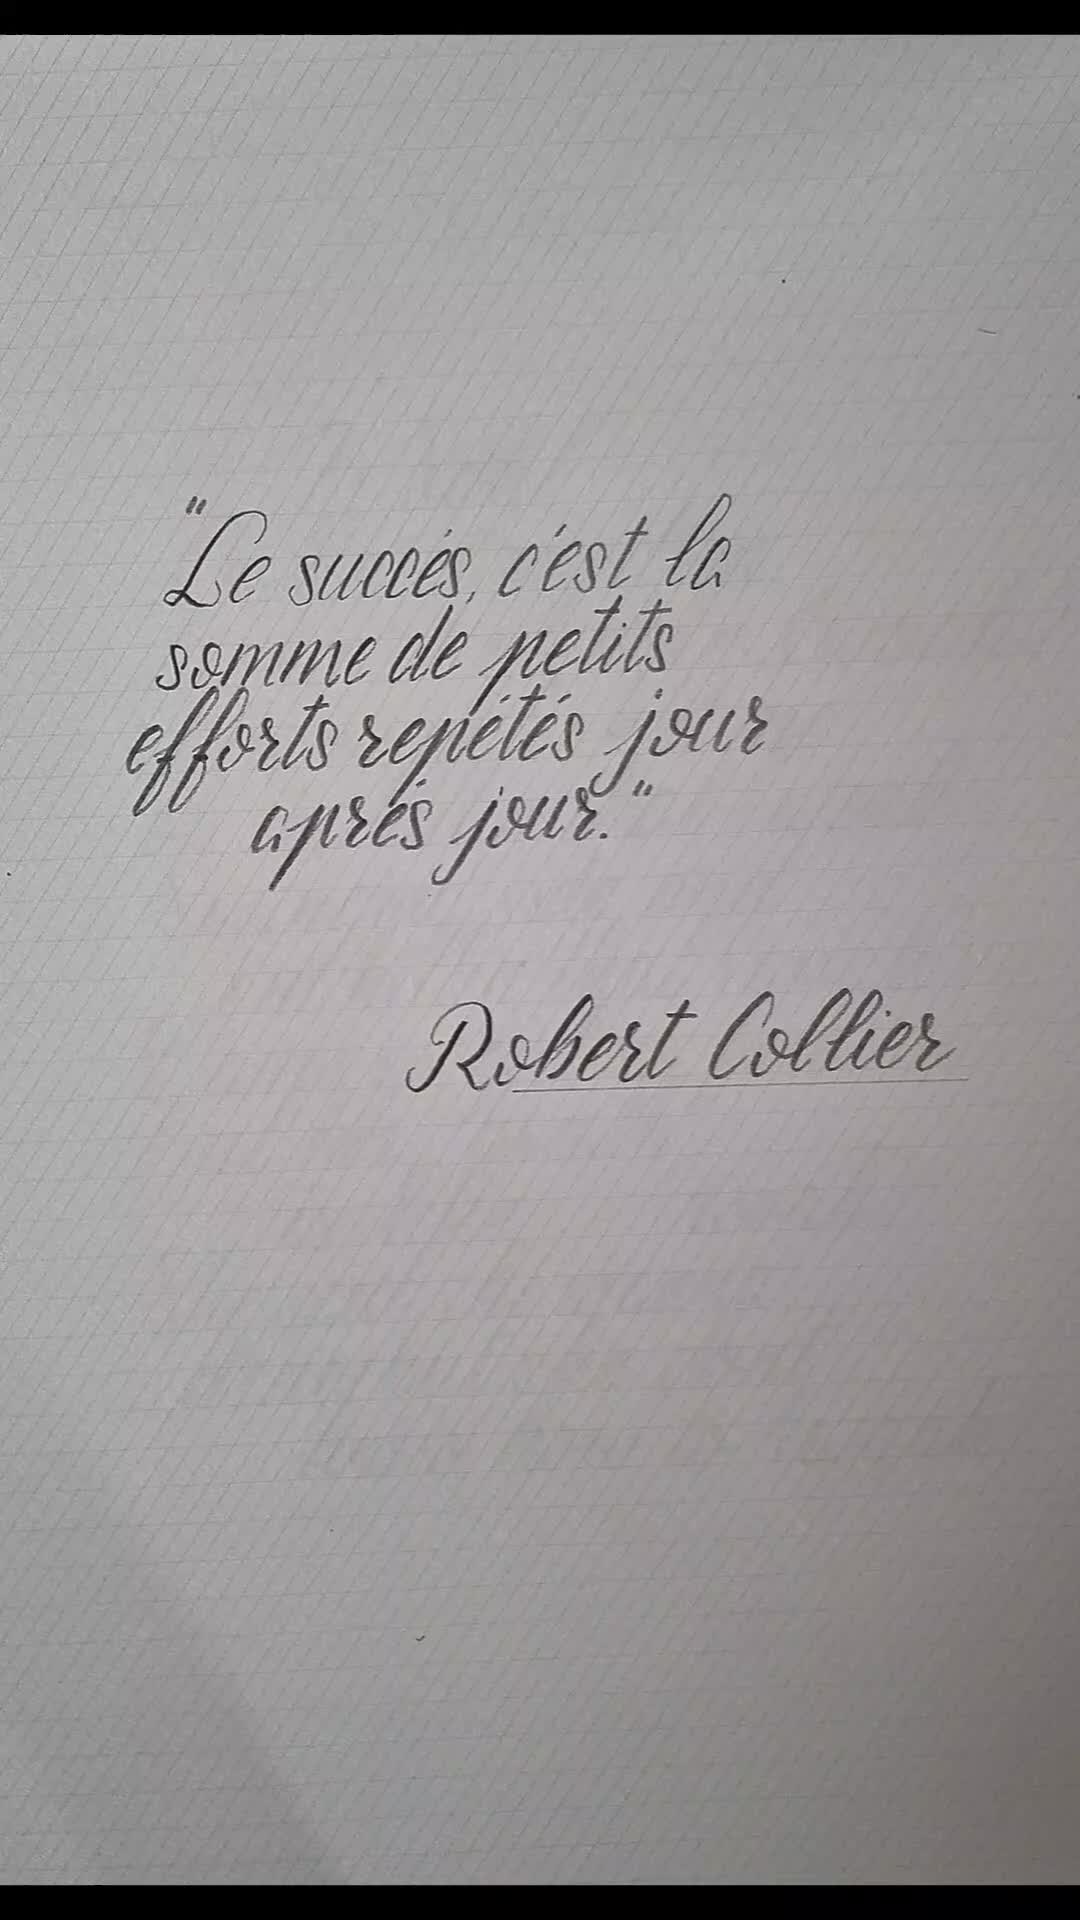 "Le succés, c'est la
somme de petits
efforts repétés jour
aprés jour."
Robert Collier